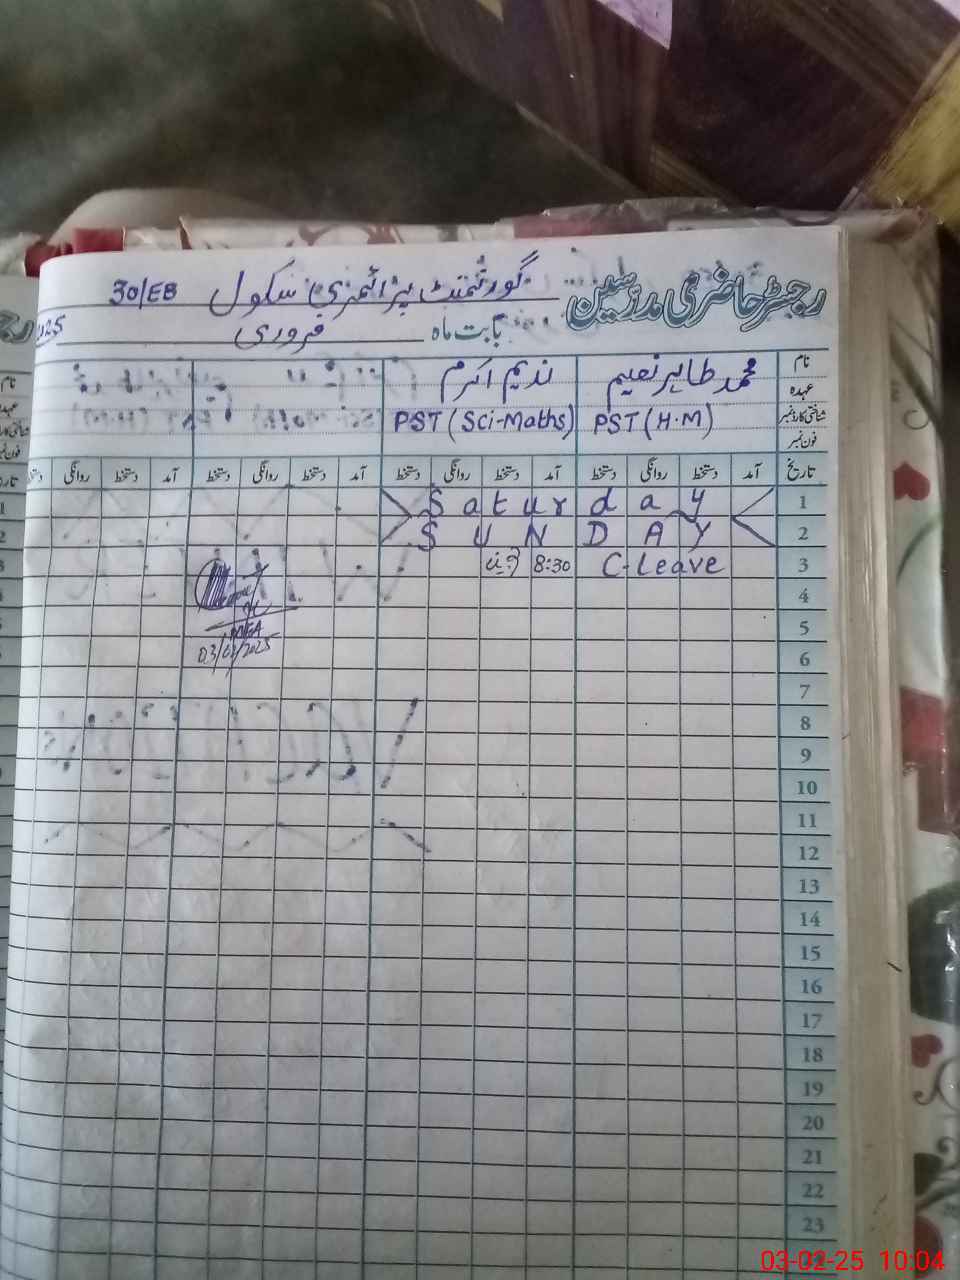 رجسٹر حاضری مدرسین گورنمنٹ پرائمری سکول 30/EB
بابت ماہ فروری 2025
نام محمد طاہر نعیم ندیم اکرم
عہدہ PST (H.M) PST (Sci-Maths)
شناختی کارڈ نمبر
فون نمبر
تاریخ آمد دستخط روانگی دستخط آمد دستخط روانگی دستخط آمد دستخط روانگی دستخط آمد دستخط روانگی دستخط
1 Saturday
2 SUNDAY
3 C-Leave 8:30
4
5
6
03/02/2025
7
8
9
10
11
12
13
14
15
16
17
18
19
20
21
22
23
03-02-25 10:04